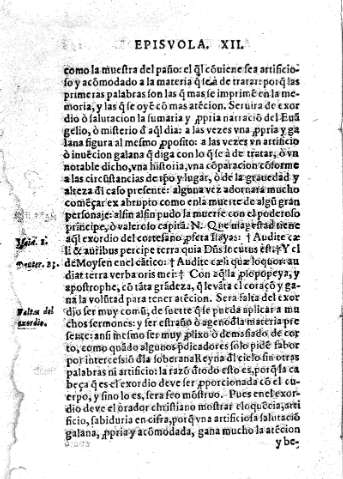 EPISVOLA. XII.
como la muestra del paño: el q̃l cõuiene sea artificio-
so y acõmodado a la materia q̃ se à de tratar: porq̃ las
primeras palabras son las q̃ mas se imprimẽ en la me-
moria, y las q̃ se oyẽ cõ mas atẽcion. Seruira de exor
dio ò salutacion la sumaria y ꝓpria narraciõ del Euã
gelio, ò misterio d̃ aq̃l dia: a las vezes vna ꝓpria y ga
lana figura al mesmo ꝓposito: a las vezes vn artificio
ò inuẽcion galana q̃ diga con lo q̃ se à de tratar, ò vn
notable dicho, vna historia, vna cõparacion cõforme
a las circũstancias de tp̃o y lugar, ò de la grauedad y
alteza d̃l caso presente: alguna vez adornara mucho
começar ex abrupto como en la muerte de algũ gran
personaje: al fin al fin pudo la muerte con el poderoso
principe, ò valeroso capitã. N. Que magestad tiene
Isaid. 1.
aq̃l exordio del cortesano ꝓfeta Isayas: † Audite cæ
li & auribus percipe terra quia Dñs locutus est: Y el
Deuter. 32.
de Moysen en el cãtico: † Audite cæli quæ loquor au
diat terra verba oris mei: † Con aq̃lla ꝓsopopeya, y
apostrophe, cõ tãta grãdeza, q̃ leuãta el coraçõ y ga-
na la volũtad para tener atẽcion. Sera falta del exor
Faltas del
exordio.
dio ser muy comũ, de suerte q̃ se pueda aplicar a mu
chos sermones: y ser estraño ò ageno d̃ la materia pre
sente: ansi mesmo ser muy ꝓlixo ò demasiado de cor
to, como quãdo algunos p̃dicadores solo pidẽ fabor
por intercessiõ d̃ la soberana Reyna d̃l cielo sin otras
palabras ni artificio: la razõ d̃ todo esto es, porq̃ la ca
beça q̃ es el exordio deue ser ꝓporcionada cõ el cu-
erpo, y sino lo es, sera feo mõstruo. Pues en el exor-
dio deue el òrador christiano mostrar eloquẽcia, arti
ficio, sabiduria en cifra, porq̃ vna artificiosa salutaciõ
galana, ꝓpria y acõmodada, gana mucho la atẽcion
y be-